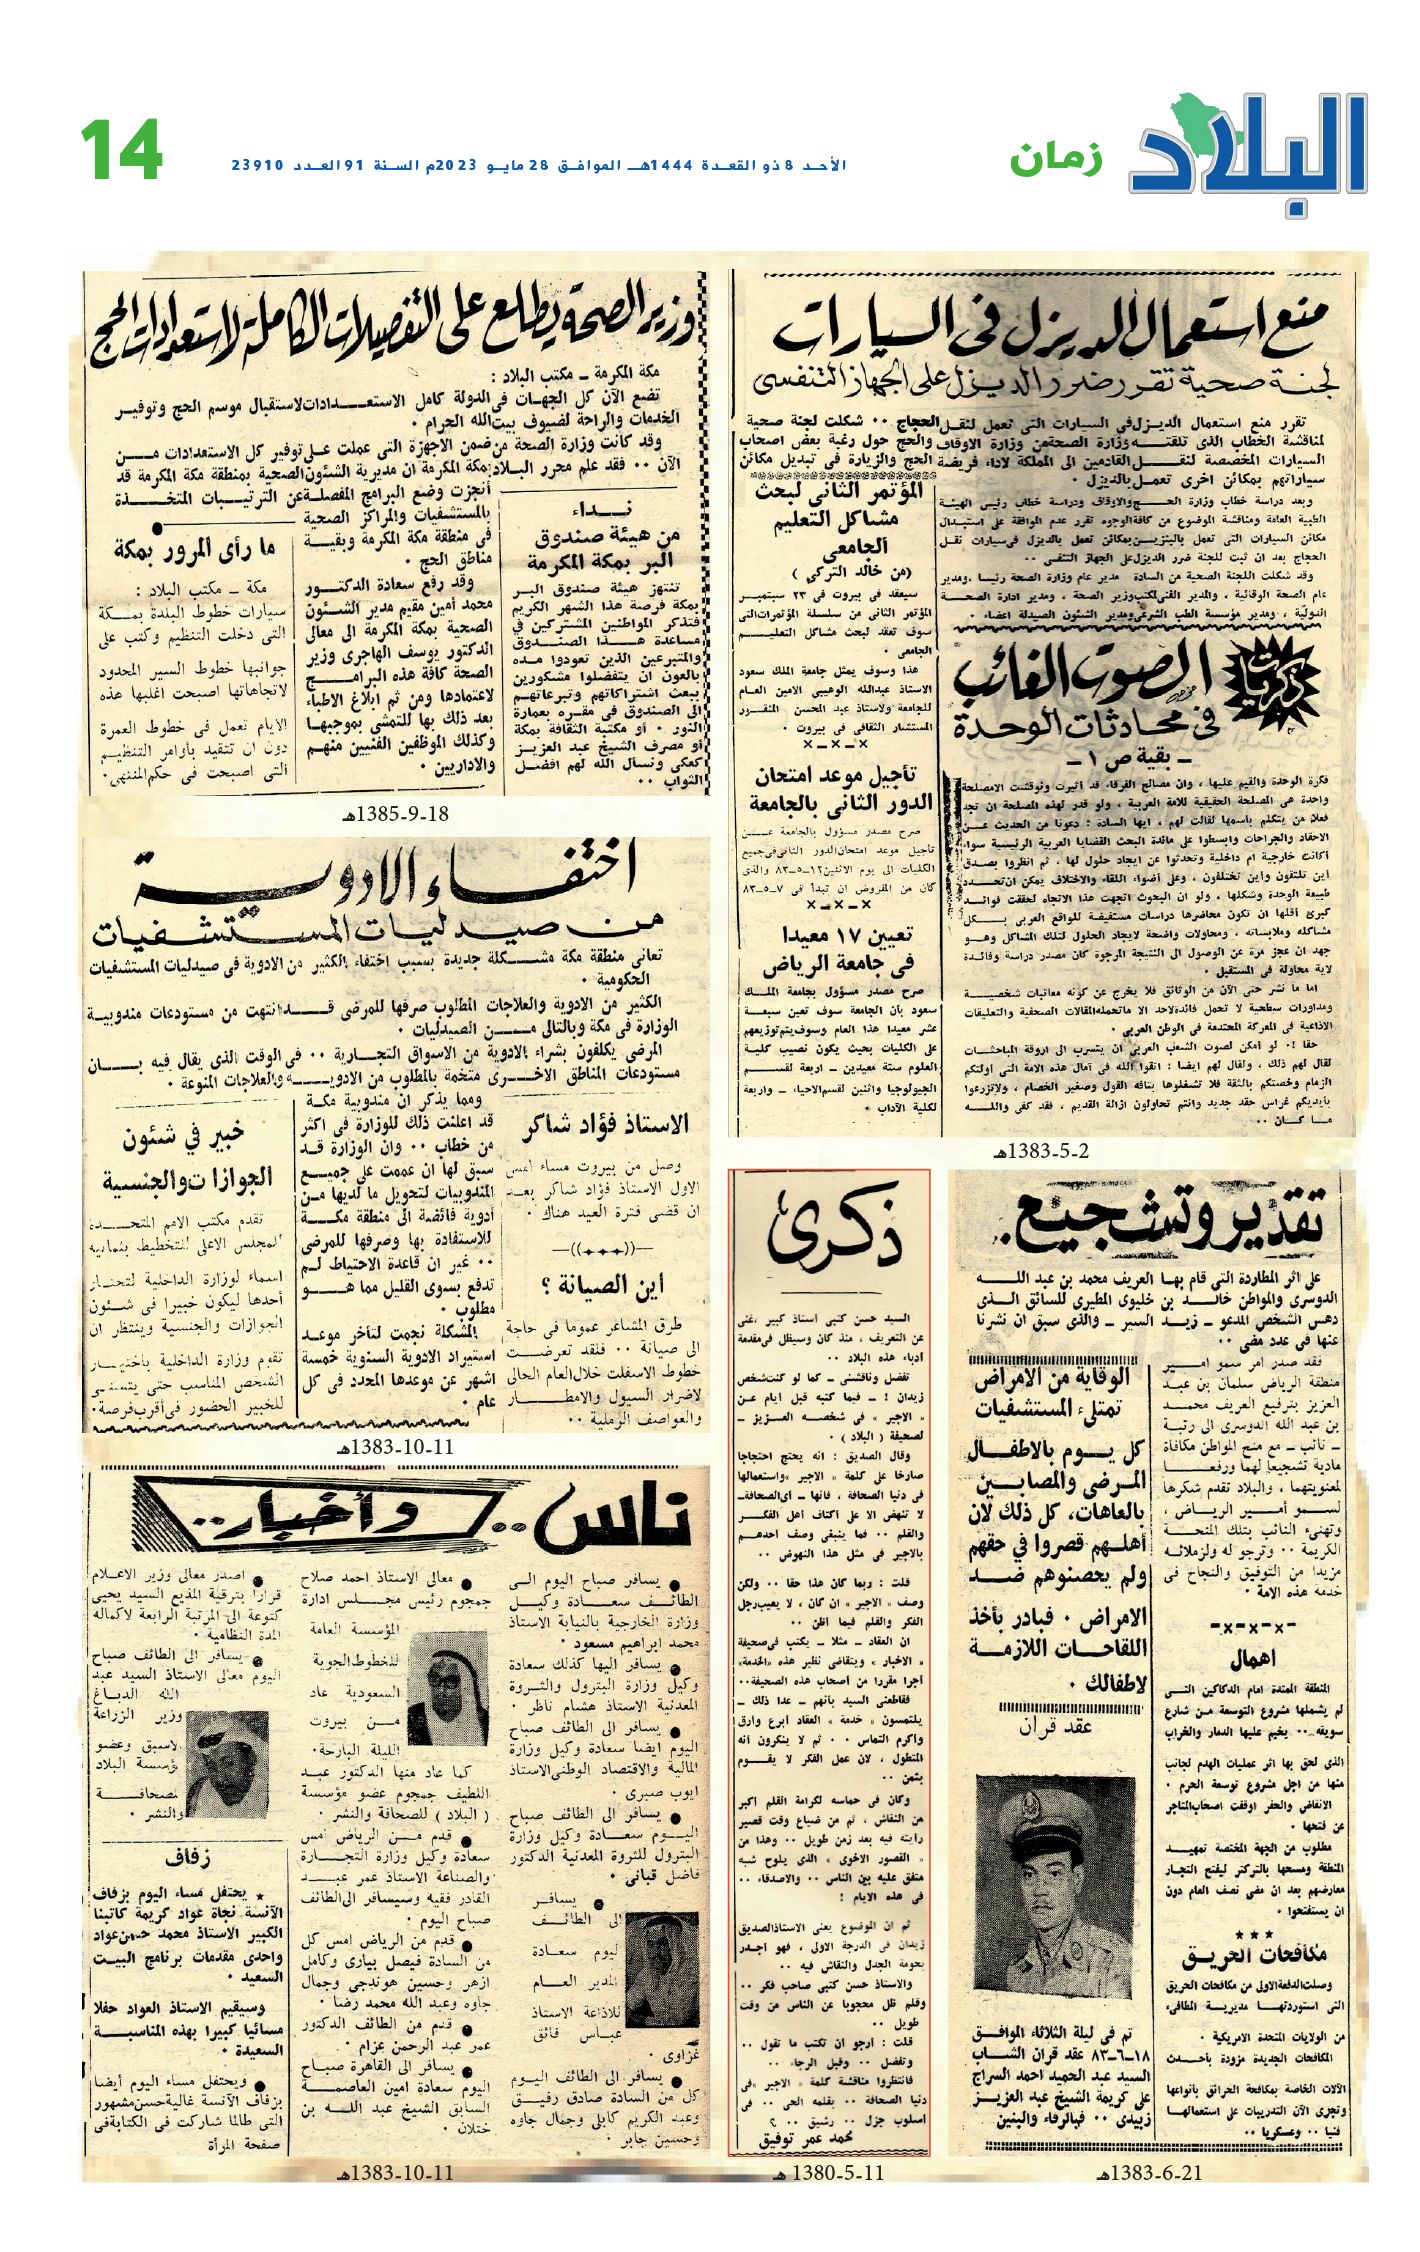 البلاد
زمان
الأحد 8 ذو القعدة 1444هـ الموافق 28 مايو 2023م السنة 91 العدد 23910
14
منع استعمال الديزل في السيارات
لجنة صحية تقرر ضرر الديزل على الجهاز التنفسى
تقرر منع استعمال الديزل في السيارات التي تعمل لنقل الحجاج ٠٠ شكلت لجنة صحية
لمناقشة الخطاب الذي تلقته وزارة الصحة من وزارة الاوقاف والحج حول رغبة بعض اصحاب
السيارات المخصصة لنقل القادمين الى المملكة لاداء فريضة الحج والزيارة في تبديل مكائن
سياراتهم بمكائن اخرى تعمل بالديزل ٠
وبعد دراسة خطاب وزارة الحج والاوقاف ودراسة خطاب رئيس الهيئة
الطبية العامة ومناقشة الموضوع من كافة الوجوه تقرر عدم الموافقة على استبدال
مكائن السيارات التى تعمل بالبنزين بمكائن تعمل بالديزل فى سيارات نقل
الحجاج بعد ان ثبت للجنة ضرر الديزل على الجهاز التنفسى ٠٠
وقد شكلت اللجنة الصحية من السادة مدير عام وزارة الصحة رئيسا ، ومدير
عام الصحة الوقائية ، والمدير الفنى لمكتب وزير الصحة ، ومدير ادارة الصحة
الدولية ، ومدير مؤسسة الطب الشرعى ومدير الشئون الصيدلة اعضاء ٠
المؤتمر الثانى لبحث
مشاكل التعليم
الجامعى
(من خالد التركي )
سيعقد في بيروت في ٢٣ سبتمبر
المؤتمر الثانى من سلسلة المؤتمرات التى
سوف تعقد لبحث مشاكل التعليم
الجامعى ٠
هذا وسوف يمثل جامعة الملك سعود
الاستاذ عبدالله الوهيبى الامين العام
للجامعة والاستاذ عبد المحسن المنقور
المستشار الثقافى فى بيروت ٠
×ـ×ـ×
تأجيل موعد امتحان
الدور الثانى بالجامعة
صرح مصدر مسؤول بالجامعة عن
تأجيل موعد امتحان الدور الثانى فى جميع
الكليات الى يوم الاثنين ١٢ـ٥ـ٨٣ والذى
كان من المفروض ان تبدأ فى ٧ـ٥ـ٨٣
×ـ×ـ×
تعيين ١٧ معيدا
فى جامعة الرياض
صرح مصدر مسؤول بجامعة الملك
سعود بأن الجامعة سوف تعين سبعة
عشر معيدا هذا العام وسوف يتم توزيعهم
على الكليات بحيث يكون نصيب كلية
العلوم ستة معيدين ـ اربعة لقسم
الجيولوجيا واثنين لقسم الاحياء ـ واربعة
لكلية الآداب ٠
ذكريات
الصوت الغائب
فى محادثات الوحدة
ـ بقية ص ١ ـ
فكرة الوحدة والقيم عليها ، وان مصالح الفرقاء قد اثيرت ونوقشت الامصلحة
واحدة هى المصلحة الحقيقية للامة العربية ، ولو قدر لهذه المصلحة ان تجد
فعلا من يتكلم باسمها لقالت لهم ، ايها السادة : دعونا من الحديث عن
الاحقاد والجراحات وابسطوا على مائدة البحث القضايا العربية الرئيسية سواء
اكانت خارجية ام داخلية وتحدثوا عن ايجاد حلول لها ، ثم انظروا بصدق
أين تلتقون وأين تختلفون ، وعلى أضواء اللقاء والاختلاف يمكن ان تحدد
طبيعة الوحدة وشكلها ، ولو ان البحوث اتجهت هذا الاتجاه لحققت فوائد
كبرى أقلها ان تكون محاضرها دراسات مستفيضة للواقع العربى بكل
مشاكله وملابساته ، ومحاولات واضحة لايجاد الحلول لتلك المشاكل وهو
جهد ان عجز مرة عن الوصول الى النتيجة المرجوة كان مصدر دراسة وفائدة
لاية محاولة فى المستقبل ٠
اما ما نشر حتى الآن من الوثائق فلا يخرج عن كونه معاتبات شخصية
ومداورات سطحية لا تحمل فائدة لاحد الا ما تحمله المقالات الصحفية والتعليقات
الاذاعية فى المعركة المحتدمة فى الوطن العربى ٠
حقا !٠ لو أمكن لصوت الشعب العربى ان يتسرب الى اروقة المباحثات
لقال لهم ذلك ، ولقال لهم ايضا : اتقوا الله فى آمال هذه الامة التى اولتكم
الزمام وخصتكم بالثقة فلا تشغلوها بتافه القول وصغير الخصام ، ولا تزرعوا
بأيديكم غراس حقد جديد وانتم تحاولون ازالة القديم ، فقد كفى والله
ما كان ٠٠
2-5-1383هـ
وزير الصحة يطلع على التفصيلات الكاملة لاستعدادات الحج
مكة المكرمة ـ مكتب البلاد :
تضع الآن كل الجهات فى الدولة كامل الاستعدادات لاستقبال موسم الحج وتوفير
الخدمات والراحة لضيوف بيت الله الحرام ٠
وقد كانت وزارة الصحة من ضمن الاجهزة التى عملت على توفير كل الاستعدادات من
الآن ٠٠ فقد علم محرر البلاد بمكة المكرمة ان مديرية الشئون الصحية بمنطقة مكة المكرمة قد
أنجزت وضع البرامج المفصلة عن الترتيبات المتخذة
بالمستشفيات والمراكز الصحية
فى منطقة مكة المكرمة وبقية
مناطق الحج ٠
وقد رفع سعادة الدكتور
محمد أمين مقيم مدير الشئون
الصحية بمكة المكرمة الى معالى
الدكتور يوسف الهاجرى وزير
الصحة كافة هذه البرامج
لاعتمادها ومن ثم ابلاغ الاطباء
بعد ذلك بها للتمشى بموجبها
وكذلك الموظفين الفنيين منهم
والاداريين ٠
نداء
من هيئة صندوق
البر بمكة المكرمة
تنتهز هيئة صندوق البر
بمكة فرصة هذا الشهر الكريم
فتذكر المواطنين المشتركين فى
مساعدة هذا الصندوق
والمتبرعين الذين تعودوا مده
بالعون ان يتفضلوا مشكورين
ببعث اشتراكاتهم وتبرعاتهم
الى الصندوق فى مقره بعمارة
النور ٠ أو مكتبة الثقافة بمكة
أو مصرف الشيخ عبد العزيز
كعكى ونسأل الله لهم افضل
الثواب ٠٠
ما رأى المرور بمكة
مكة ـ مكتب البلاد :
سيارات خطوط البلدة بمكة
التى دخلت التنظيم وكتب على
جوانبها خطوط السير المحدود
لاتجاهاتها اصبحت اغلبها هذه
الايام تعمل فى خطوط العمرة
دون ان تتقيد بأوامر التنظيم
التى اصبحت فى حكم المنتهى٠
18-9-1385هـ
اختفاء الادوية
من صيدليات المستشفيات
تعانى منطقة مكة مشكلة جديدة بسبب اختفاء الكثير من الادوية فى صيدليات المستشفيات
الحكومية ٠
الكثير من الادوية والعلاجات المطلوب صرفها للمرضى قد انتهت من مستودعات مندوبية
الوزارة فى مكة وبالتالى من الصيدليات ٠
المرضى يكلفون بشراء الادوية من الاسواق التجارية ٠٠ فى الوقت الذى يقال فيه بان
مستودعات المناطق الاخرى متخمة بالمطلوب من الادوية والعلاجات المنوعة ٠
ومما يذكر ان مندوبية مكة
قد اعلنت ذلك للوزارة فى اكثر
من خطاب ٠٠ وان الوزارة قد
سبق لها ان عممت على جميع
المندوبيات لتحويل ما لديها من
أدوية فائضة الى منطقة مكة
للاستفادة بها وصرفها للمرضى
٠٠ غير ان قاعدة الاحتياط لم
تدفع بسوى القليل مما هو
مطلوب ٠
المشكلة نجمت لتأخر موعد
استيراد الادوية السنوية خمسة
اشهر عن موعدها المحدد فى كل
عام ٠
الاستاذ فؤاد شاكر
وصل من بيروت مساء امس
الاول الاستاذ فؤاد شاكر بعد
ان قضى فترة العيد هناك ٠
اين الصيانة ؟
طرق المشاعر عموما فى حاجة
الى صيانة ٠٠ فلقد تعرضت
خطوط الاسفلت خلال العام الحالى
لاضرار السيول والامطار
والعواصف الرملية ٠٠
خبير في شئون
الجوازات والجنسية
تقدم مكتب الامم المتحدة
للمجلس الاعلى للتخطيط بثمانية
اسماء لوزارة الداخلية لتختار
أحدها ليكون خبيرا فى شئون
الجوازات والجنسية وينتظر ان
تقوم وزارة الداخلية باختيار
الشخص المناسب حتى يتسنى
للخبير الحضور فى أقرب فرصة٠
11-10-1383هـ
ذكرى
السيد حسن كتبى استاذ كبير ،غنى
عن التعريف ، منذ كان وسيظل فى مقدمة
ادباء هذه البلاد ٠٠
تفضل وناقشنى ـ كما لو كنت شخص
زيدان ! ـ فيما كتبه قبل ايام عن
« الاجير » فى شخصه العزيز ـ
لصحيفة ( البلاد ) ٠
وقال الصديق : انه يحتج احتجاجا
صارخا على كلمة « الاجير » واستعمالها
فى دنيا الصحافة ، فانها ـ أى الصحافة ـ
لا تنهض الا على اكتاف اهل الفكر
والقلم ٠٠ فما ينبغى وصف احدهم
بالاجير فى مثل هذا النهوض ٠٠
قلت : ربما كان هذا حقا ٠٠ ولكن
وصف «الاجير » ان كان ، لا يعيب رجل
الفكر والقلم فيما أظن ٠٠
ان العقاد ـ مثلا ـ يكتب فى صحيفة
« الاخبار » ويتقاضى نظير هذه «الخدمة»
أجرا مقررا من أصحاب هذه الصحيفة٠٠
فقاطعنى السيد بأنهم ـ عدا ذلك ـ
يلتمسون « خدمة » العقاد ابرع وارق
واكرم التماس ٠٠ ثم لا ينكرون انه
المتطول ، لان عمل الفكر لا يقوم
بثمن ٠٠
وكان فى حماسه لكرامة القلم اكبر
من النقاش ، ثم من ضياع وقت قصير
رايته فيه بعد زمن طويل ٠٠ وهذا من
« القصور الاخوى » الذى يلوح شبه
متفق عليه بين الناس ٠٠ والاصدقاء ٠٠
فى هذه الايام !
ثم ان الموضوع يعنى الاستاذ الصديق
زيدان فى الدرجة الاولى ، فهو اجدر
بحومة الجدل والنقاش فيه ٠٠
والاستاذ حسن كتبى صاحب فكر ٠٠
وقلم ظل محجوبا عن الناس من وقت
طويل ٠٠
قلت : ارجو ان تكتب ما تقول ٠٠
وتفضل ٠٠ وقبل الرجاء ٠٠
فانتظروا مناقشة كلمة «الاجير »فى
دنيا الصحافة ٠٠ بقلمه الحى ٠٠ فى
اسلوب جزل ٠٠ رشيق ٠٠ ؟
محمد عمر توفيق
11-5-1380 هـ
تقدير وتشجيع.
على اثر المطاردة التى قام بها العريف محمد بن عبد الله
الدوسرى والمواطن خالد بن خليوى المطيرى للسائق الذى
دهس الشخص المدعو ـ زيد السير ـ والذى سبق ان نشرنا
عنها فى عدد مضى ٠٠
فقد صدر امر سمو امير
منطقة الرياض سلمان بن عبد
العزيز بترفيع العريف محمد
بن عبد الله الدوسرى الى رتبة
ـ نائب ـ مع منح المواطن مكافأة
مادية تشجيعا لهما ورفعا
لمعنويتهما ، والبلاد تقدم شكرها
لسمو أمير الرياض ،
وتهنىء النائب بتلك المنحة
الكريمة ٠٠ وترجو له ولزملائه
مزيدا من التوفيق والنجاح فى
خدمة هذه الامة ٠
-×-×-×-
اهمال
المنطقة الممتدة امام الدكاكين التى
لم يشملها مشروع التوسعة من شارع
سويقه ٠٠ يخيم عليها الدمار والخراب
الذى لحق بها اثر عمليات الهدم لجانب
منها من اجل مشروع توسعة الحرم ٠
الانقاض والحفر اوقفت اصحاب المتاجر
عن فتحها ٠
مطلوب من الجهة المختصة تمهيد
المنطقة ومسحها بالتركتر ليفتح التجار
معارضهم بعد ان مضى نصف العام دون
ان يستفتحوا ٠
★ ★ ★
مكافحات الحريق
وصلت الدفعة الاولى من مكافحات الحريق
التى استوردتها مديرية المطافىء
من الولايات المتحدة الامريكية ٠
المكافحات الجديدة مزودة بأحدث
الآلات الخاصة بمكافحة الحرائق بأنواعها
وتجرى الآن التدريبات على استعمالها
فنيا ٠٠ وعسكريا ٠٠
الوقاية من الامراض
تمتلىء المستشفيات
كل يوم بالاطفال
المرضى والمصابين
بالعاهات، كل ذلك لان
أهلهم قصروا في حقهم
ولم يحصنوهم ضد
الامراض ٠ فبادر بأخذ
اللقاحات اللازمة
لاطفالك ٠
عقد قران
تم فى ليلة الثلاثاء الموافق
١٨ـ٦ـ٨٣ عقد قران الشاب
السيد عبد الحميد احمد السراج
على كريمة الشيخ عبد العزيز
زبيدى ٠٠ فبالرفاء والبنين
21-6-1383هـ
ناس .. وأخبار..
● يسافر صباح اليوم الى
الطائف سعادة وكيل
وزارة الخارجية بالنيابة الاستاذ
محمد ابراهيم مسعود ٠
● يسافر اليها كذلك سعادة
وكيل وزارة البترول والثروة
المعدنية الاستاذ هشام ناظر ٠
● يسافر الى الطائف صباح
اليوم ايضا سعادة وكيل وزارة
المالية والاقتصاد الوطنى الاستاذ
ايوب صبرى ٠
● يسافر الى الطائف صباح
اليوم سعادة وكيل وزارة
البترول للثروة المعدنية الدكتور
فاضل قبانى ٠
● يسافر
الى الطائف
اليوم سعادة
المدير العام
للاذاعة الاستاذ
عباس فائق
غزاوى ٠
● يسافر الى الطائف اليوم
كل من السادة صادق رفيق
وعبد الكريم كابلى وجمال جاوه
وحسين جابر ٠
● معالى الاستاذ احمد صلاح
جمجوم رئيس مجلس ادارة
المؤسسة العامة
للخطوط الجوية
السعودية عاد
من بيروت
الليلة البارحة٠
كما عاد منها الدكتور عبد
اللطيف جمجوم عضو مؤسسة
( البلاد ) للصحافة والنشر ٠
● قدم من الرياض امس
سعادة وكيل وزارة التجارة
والصناعة الاستاذ عمر عبد
القادر فقيه وسيسافر الى الطائف
صباح اليوم ٠
● قدم من الرياض امس كل
من السادة فيصل بيارى وكامل
ازهر وحسين هوندجى وجمال
جاوه وعبد الله محمد رضا ٠
● قدم من الطائف الدكتور
عمر عبد الرحمن عزام ٠
● يسافر الى القاهرة صباح
اليوم سعادة امين العاصمة
السابق الشيخ عبد الله بن
ختلان ٠
● اصدر معالى وزير الاعلام
قرارا بترقية المذيع السيد يحيى
كتوعة الى المرتبة الرابعة لاكماله
المدة النظامية ٠
● يسافر الى الطائف صباح
اليوم معالى الاستاذ السيد عبد
الله الدباغ
وزير الزراعة
الاسبق وعضو
مؤسسة البلاد
للصحافة
والنشر ٠
زفاف
★ يحتفل مساء اليوم بزفاف
الآنسة نجاة عواد كريمة كاتبنا
الكبير الاستاذ محمد حسن عواد
واحدى مقدمات برنامج البيت
السعيد ٠
وسيقيم الاستاذ العواد حفلا
مسائيا كبيرا بهذه المناسبة
السعيدة ٠
● ويحتفل مساء اليوم أيضا
بزفاف الآنسة غالية حسن مشهور
التى طالما شاركت فى الكتابة فى
صفحة المرأة
11-10-1383هـ